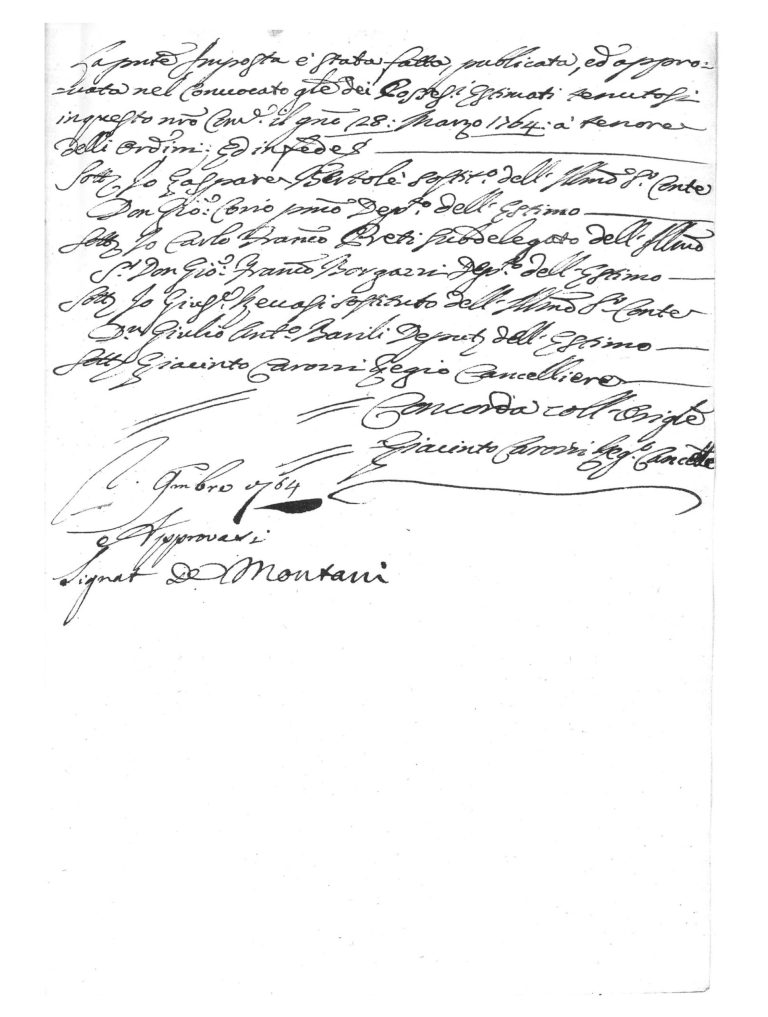 La pnte Imposta è stata fatta, publicata, ed appro-
-vata nel Convocato gle dei Possessi Estimati tenutosi
in questo nro Com.e il gno 28: Marzo 1764: à tenore
delli Ordini; Ed in fede
Sott. Io Gaspare Bertolè sostit.o dell' Illmo S.r Conte
Don Gio: Corio pmo Dep.to dell' Estimo
Sott. Io Carlo Franco Preti subdelegato dell' Illmo
S.r Don Gio: Franco Borgazzi Dep.to dell' Estimo
Sott. Io Gius.e sostituto dell' Illmo S.r Conte
D.n Giulio Ant.o Barili Deput. dell' Estimo
Sott. Giacinto Carozzi Regio Cancelliere
Concorda coll' Origle
Giacinto Carozzi Reg.o Cancelle
9mbre 1764
e Approvasi
Signat De Montani